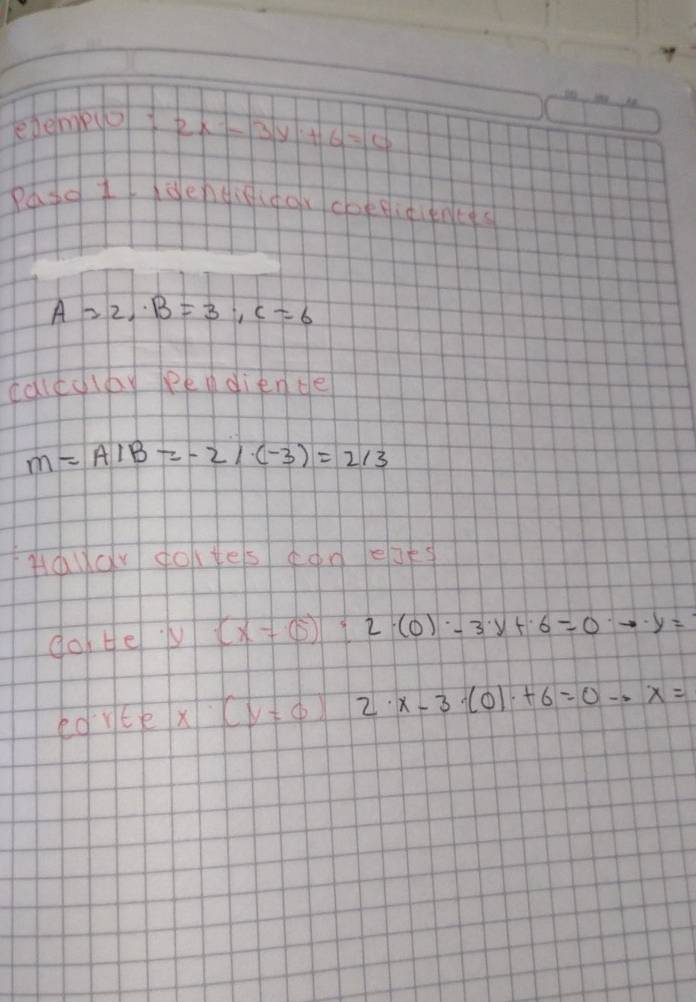 ejemplo : 2x - 3y + 6 = 0
Paso 1 - identificar coeficientes
A = 2, B = 3 , C = 6
calcular Pendiente
m = A / B = - 2 / (-3) = 2/3
Hallar cortes con ejes
corte y (x = 0) : 2 · (0) - 3 · y + 6 = 0 → y =
corte x (y = 0) 2 · x - 3 · (0) + 6 = 0 → x =